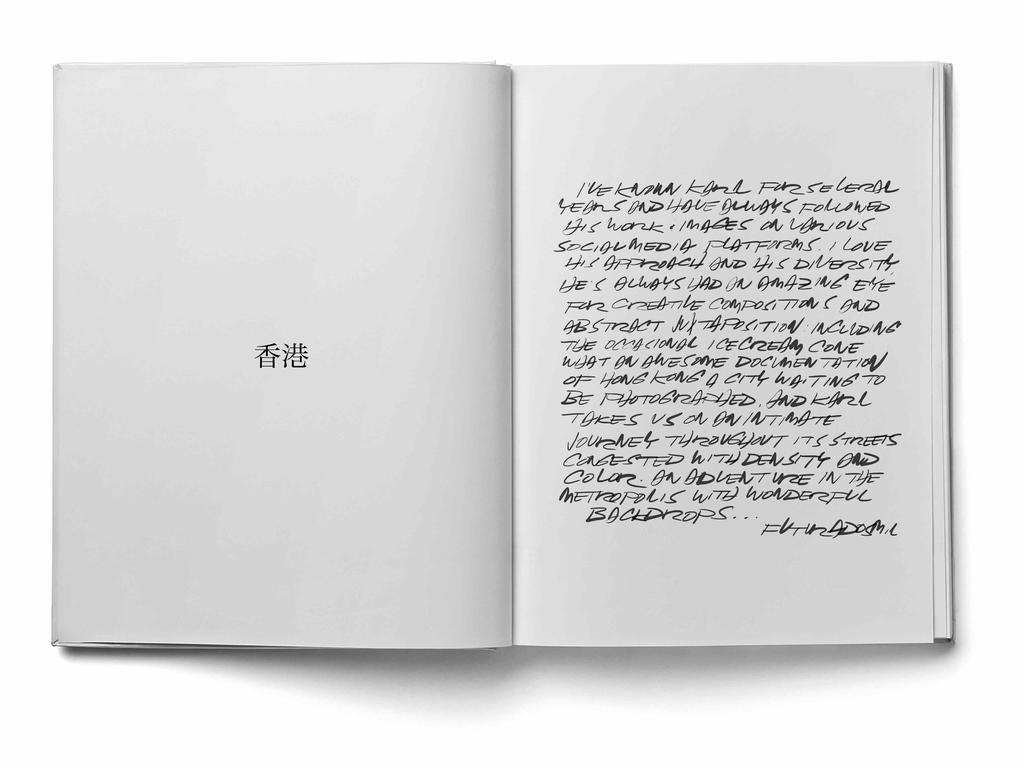 香港
I'VE KNOWN KARL FOR SEVERAL
YEARS AND HAVE ALWAYS FOLLOWED
HIS WORK + IMAGES ON VARIOUS
SOCIAL MEDIA PLATFORMS. I LOVE
HIS APPROACH AND HIS DIVERSITY.
HE'S ALWAYS HAD AN AMAZING EYE
FOR CREATIVE COMPOSITIONS AND
ABSTRACT JUXTAPOSITION. INCLUDING
THE OCCASIONAL ICECREAM CONE
WHAT AN AWESOME DOCUMENTATION
OF HONG KONG A CITY WAITING TO
BE PHOTOGRAPHED. AND KARL
TAKES US ON AN INTIMATE
JOURNEY THROUGHOUT ITS STREETS
CONGESTED WITH DENSITY AND
COLOR. AN ADVENTURE IN THE
METROPOLIS WITH WONDERFUL
BACKDROPS...
FUTURADOSMIL